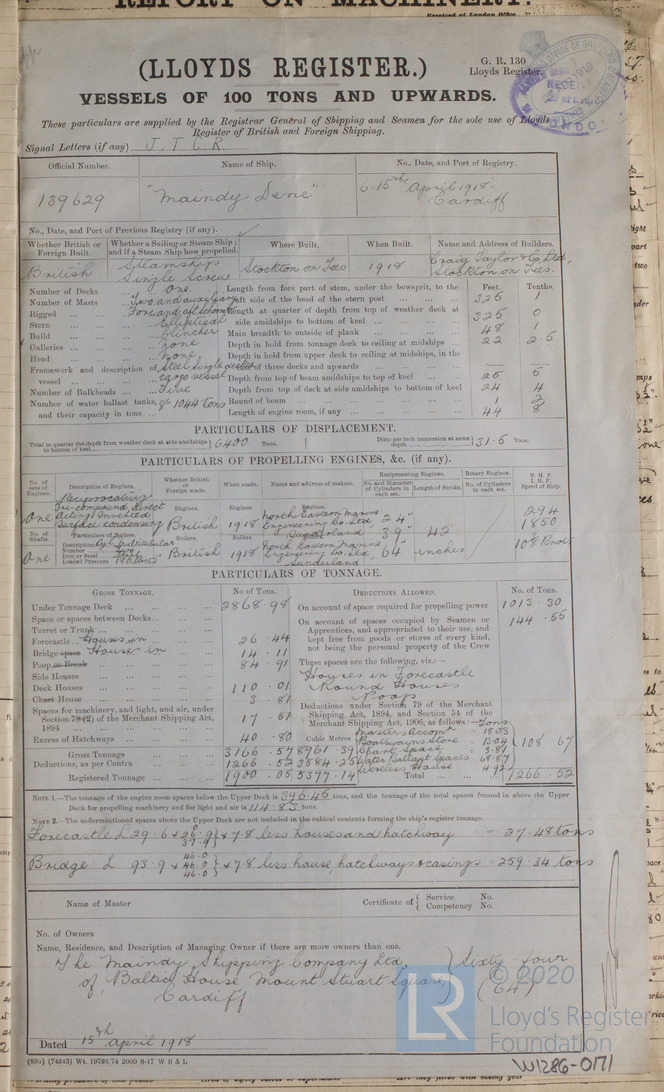 REPORT ON MACHINERY.
Received at London Office
G. R. 130
Lloyds Register.
(LLOYDS REGISTER.)
VESSELS OF 100 TONS AND UPWARDS.
These particulars are supplied by the Registrar General of Shipping and Seamen for the sole use of Lloyds
Register of British and Foreign Shipping.
Signal Letters (if any) J. T. L. R.
Official Number. Name of Ship. No., Date, and Port of Registry.
139629 "Maindy Dene" 6. 15th April 1918. Cardiff
No., Date, and Port of Previous Registry (if any).
Whether British or Foreign Built. Whether a Sailing or Steam Ship; and if a Steam Ship how propelled. Where Built. When Built. Name and Address of Builders.
British Steamship Single Screw Stockton on Tees 1918 Craig Taylor & Co. Ltd, Stockton on Tees.
Number of Decks ... One
Number of Masts ... Two and auxiliary
Rigged ... Fore and aft schooner
Stern ... Elliptical
Build ... Clincher
Galleries ... none
Head ... none
Framework and description of vessel ... Steel Single decked cargo vessel
Number of Bulkheads ... Five
Number of water ballast tanks, and their capacity in tons ... 8 - 1044 tons
Feet. Tenths.
Length from fore part of stem, under the bowsprit, to the aft side of the head of the stern post ... 325 1
Length at quarter of depth from top of weather deck at side amidships to bottom of keel ... 325 0
Main breadth to outside of plank ... 48 1
Depth in hold from tonnage deck to ceiling at midships 22 2.5
Depth in hold from upper deck to ceiling at midships, in the case of three decks and upwards —
Depth from top of beam amidships to top of keel ... 25 5
Depth from top of deck at side amidships to bottom of keel 24 4
Round of beam ... 1 2
Length of engine room, if any ... 44 8
PARTICULARS OF DISPLACEMENT.
Total to quarter the depth from weather deck at side amidships to bottom of keel 6400 Tons. Ditto per inch immersion at same depth 31.5 Tons.
PARTICULARS OF PROPELLING ENGINES, &c. (if any).
No. of sets of Engines. Description of Engines. Whether British or Foreign made. When made. Name and address of makers. Reciprocating Engines. No. and Diameter of Cylinders in each set. Length of Stroke. Rotary Engines. No. of Cylinders in each set. N. H. P. I. H. P. Speed of Ship.
One Reciprocating Tri compound direct acting Inverted Surface condensing
Engines. British Engines 1918 Engines. North Eastern Marine Engineering Co. Ltd Sunderland
24" 39" 64" 42 inches 294 1850 10½ Knots
No. of Shafts. Particulars of Boilers.
One Description Cyl. Multitubular
Number
Iron or Steel Steel
Loaded Pressure 180 lbs
Boilers. British Boilers 1918 Boilers. North Eastern Marine Engineering Co. Ltd, Sunderland
PARTICULARS OF TONNAGE.
GROSS TONNAGE. No. of Tons.
Under Tonnage Deck ... 2868.98
Space or spaces between Decks ...
Turret or Trunk ...
Forecastle ... Houses in 26.44
Bridge space House in 14.11
Poop, or Break ... 84.91
Side Houses ...
Deck Houses ... 110.01
Chart House ... 3.81
Spaces for machinery, and light, and air, under Section 78 (2) of the Merchant Shipping Act, 1894 ... 17.51
Excess of Hatchways ... 40.80 Cubic Metres
Gross Tonnage ... 3166.57 8961.39
Deductions, as per Contra ... 1266.52 3584.25
Registered Tonnage ... 1900.05 5377.14
DEDUCTIONS ALLOWED. No. of Tons.
On account of space required for propelling power 1013.30
On account of spaces occupied by Seamen or Apprentices, and appropriated to their use, and kept free from goods or stores of every kind, not being the personal property of the Crew 144.55
These spaces are the following, viz.:—
Houses in Forecastle
Round Houses
Poop
Deductions under Section 79 of the Merchant Shipping Act, 1894, and Section 54 of the Merchant Shipping Act, 1906, as follows:— Tons
Masters Accomn. 18.03
Boatswains Store 13.04
Chart Space 3.81
Water Ballast spaces 68.87
Wireless House 4.92
108.67
Total ... 1266.52
NOTE 1.—The tonnage of the engine room spaces below the Upper Deck is 396.45 tons, and the tonnage of the total spaces framed in above the Upper
Deck for propelling machinery and for light and air is 114.83 tons.
NOTE 2.—The undermentioned spaces above the Upper Deck are not included in the cubical contents forming the ship's register tonnage.
Forecastle L 29.6 x 7.8 less houses and hatchway = 27.48 tons
Bridge L 93.9 x 46.0 46.0 46.0 x 7.8 less house, hatchways & casings = 259.34 tons
Name of Master Certificate of Service No. Competency No.
No. of Owners
Name, Residence, and Description of Managing Owner if there are more owners than one.
The Maindy Shipping Company Ltd, Sixty four
of Baltic House Mount Stuart Square, (64)
Cardiff
Dated 15th April 1918
(83o) (74343) Wt. 19793/74 2000 8-17 W B & L
LR © 2020
Lloyd's Register
Foundation
W1286-0171